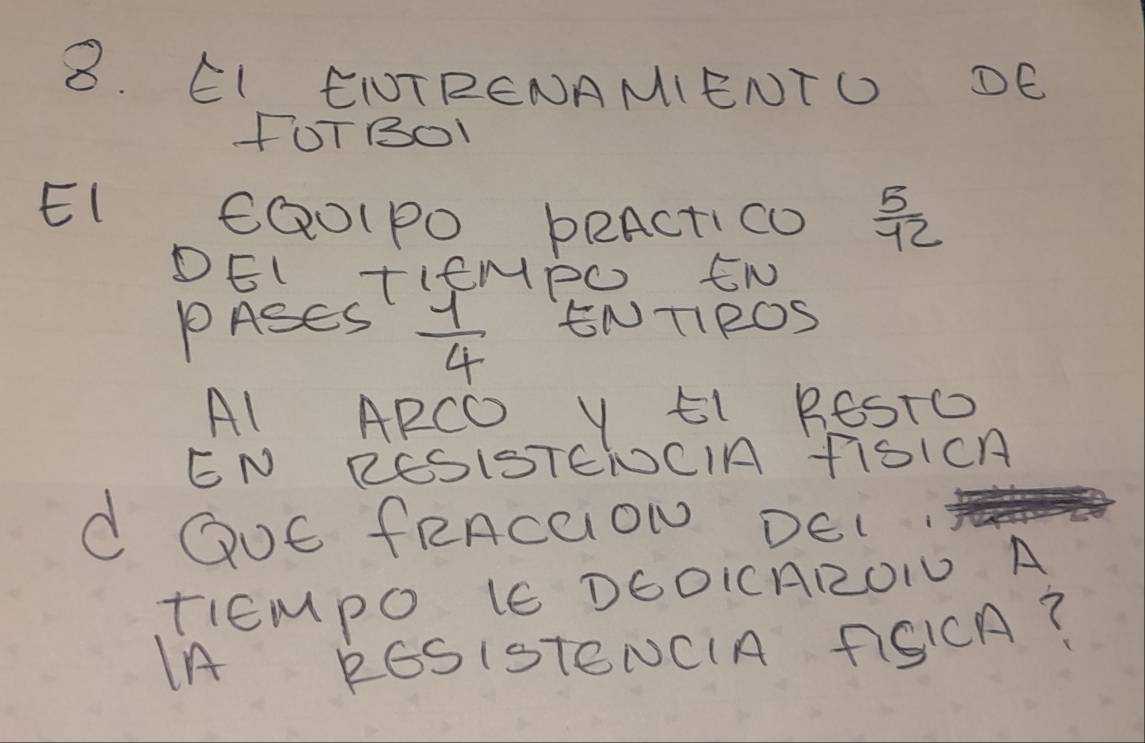 8. El ENTRENAMIENTO DE
FUTBOl
El EQUIPO PRACTICO 5/12
DEl TIEMPO EN
PASES 1/4 EN TIROS
Al ARCO Y El RESTO
EN RESISTENCIA FISICA
¿ QUE FRACCION DEl
TIEMPO lE DEDICARON A
lA RESISTENCIA FISICA?